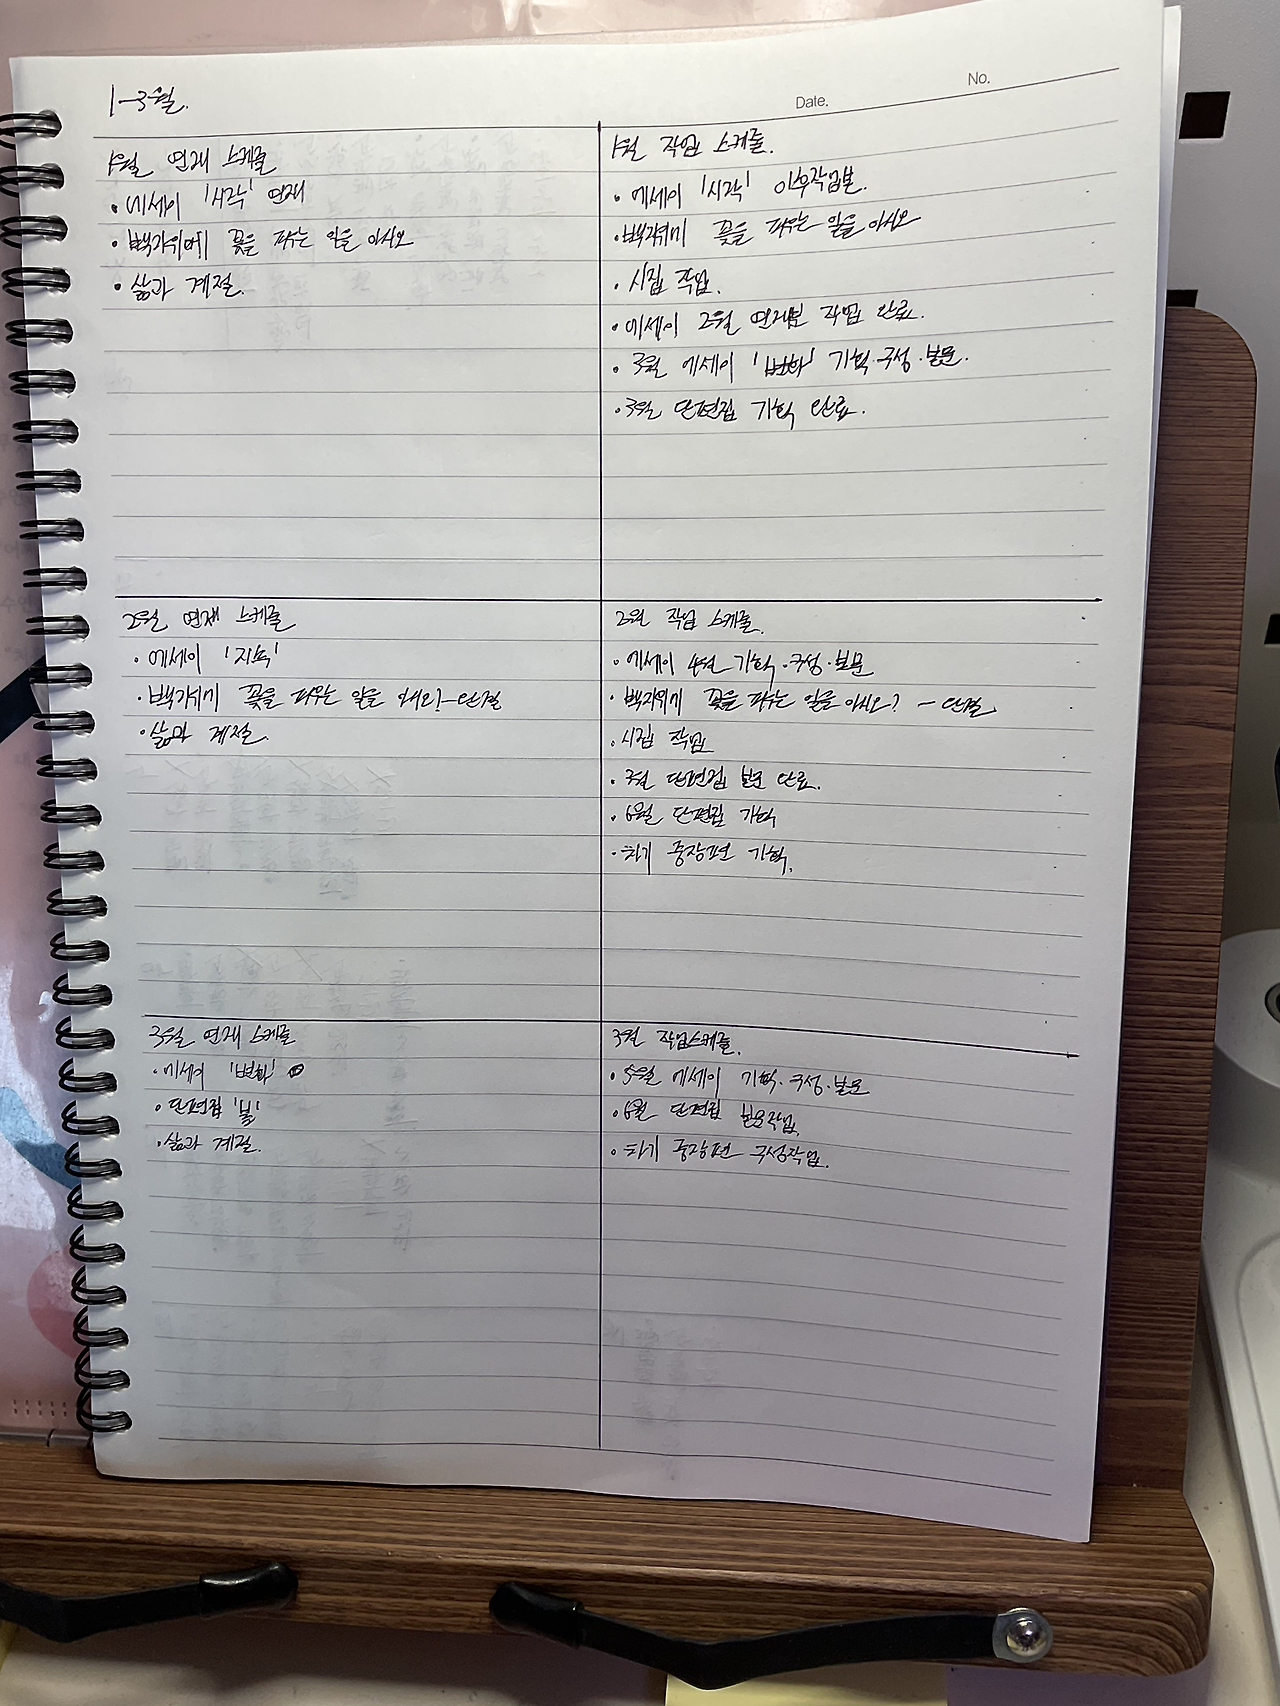 1-3월.
No.
Date.
1월 연재 스케줄
• 에세이 '시작' 연재
• 백가위에 꽃을 피우는 일을 아시오
• 삶과 계절.
1월 작업 스케줄.
• 에세이 '시작' 이후작업분.
• 백가위에 꽃을 피우는 일을 아시오
• 시집 작업.
• 에세이 2월 연재분 작업 완료.
• 3월 에세이 '변화' 기획·구성·본문.
• 3월 단편집 기획 완료.
2월 연재 스케줄
• 에세이 '지속'
• 백가위에 꽃을 피우는 일을 아시오?-완결
• 삶과 계절.
2월 작업 스케줄.
• 에세이 4월 기획·구성·본문
• 백가위에 꽃을 피우는 일을 아시오? - 완결.
• 시집 작업
• 3월 단편집 본문 완료.
• 6월 단편집 기획
• 차기 중장편 기획.
3월 연재 스케줄
• 에세이 '변화'
• 단편집 '불'
• 삶과 계절.
3월 작업스케줄.
• 5월 에세이 기획·구성·본문
• 6월 단편집 본문작업.
• 차기 중장편 구성작업.